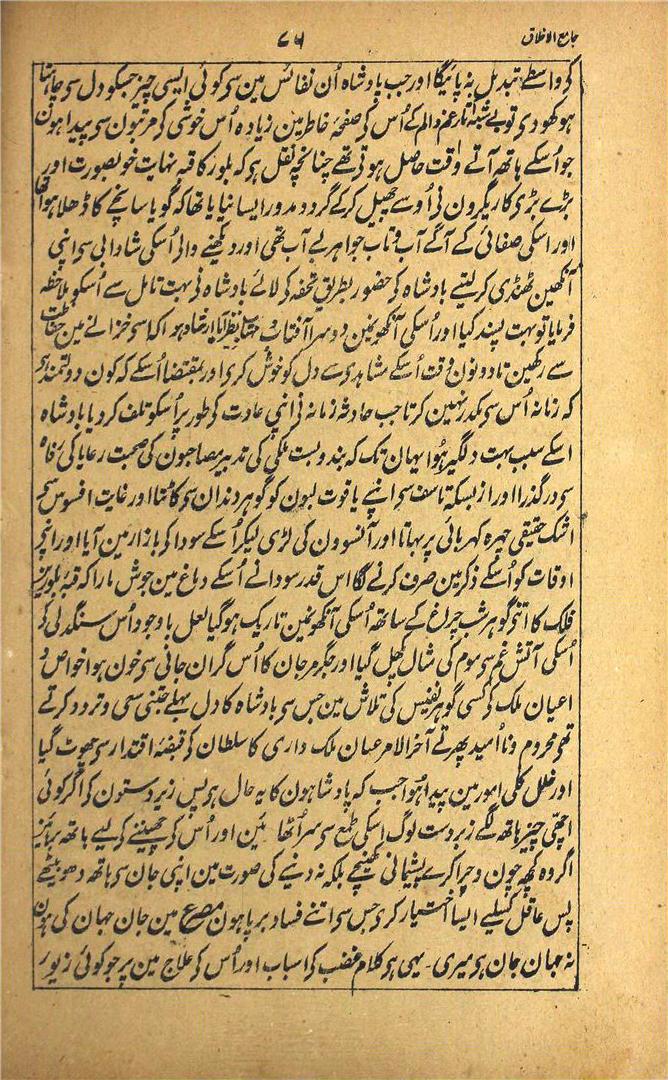 جامع الاخلاق ۷۶
کے واسطے تبدیل نہ پائیگا اور جب بادشاہ اُن نفائس مین سی کوئی ایسی چیز جسکو دل سی چاہتا
ہو کھو دی تو بے شبہ تارغم و الم کے اُس کی صفحۂ خاطر مین زیادہ اُس خوشی کی مرتبون سی پیدا ہون
جو اُسکے ہاتھ آتے وقت حاصل ہوتی تھے چنانچہ نقل ہی کہ بلور کا قبہ نہایت خوبصورت اور
بڑے بڑی کاریگرون نی اُوسے چھیل کر کے گرد و مدور ایسا بنایا تھا کہ گویا سانچے کا ڈھلا ہوا تھا
اور اسکی صفائی کے آگے آب و تاب جواہر بے آب تھی اور دیکھنے والی اُسکی شادابی سی اپنی
آنکھین ٹھنڈی کر لیتے بادشاہ کی حضور بطریق تحفہ کی لائے بادشاہ نی بہت تامل سے اُسکو ملاحظہ
فرمایا تو بہت پسند کیا اور اُسکی آنکھونمین دوسرا آفتاب و نظر آیا ارشاد ہوا کہ اسی خزانے مین حفاظت
سے رکھین تا دونون وقت اُسکے مشاہدی سے دل کو خوش کری اور بمقتضا اُسکے کہ کون دولتمند ہی
کہ زمانہ اُس سی مکدر نہین کرتا جب حادثہ زمانہ نی اپنی عادت کی طور پر اُسکو تلف کر دیا بادشاہ
اسکے سبب بہت دلگیر ہُوا یہان تک کہ بندوبست ملکی کی تدبیر مصاحبون کی صحبت رعایا کی رفاہ
سی درگذرا اور از بسکہ تاسف سی اپنے یاقوت لبون کو گوہر دندان سی کاٹتا اور غایت افسوس سی
اشک حقیقی چہرہ کہربائی پر بہاتا اور آنسوون کی لڑی لیکر اُسکے سودا کی بازار مین آیا اور اپنے
اوقات کو اُسکے ذکر مین صرف کرنے لگا اس قدر سودا نے اُسکے دماغ مین جوش مارا کہ قبۂ بلورین
فلک کا اتنی گوہر شب چراغ کے ساتھ اُسکی آنکھونمین تاریک ہوگیا لعل باوجود اُس سنگدلی کی
اُسکی آتش غم سی موم کی مثال گھل گیا اور جگر مرجان کا اُس گران جانی سی خون ہوا خواص و
اعیان ملک کی کسی گوہر نفیس کی تلاش مین جس سی بادشاہ کا دل بہلے جتنی سعی و تردد کرتے
تھی محروم و نا اُمید پھرتے آخر الامر عنان ملک داری کا سلطان کی قبضۂ اقتدار سی چھوٹ گیا
اور خلل کلی امور مین پیدا ہُوا جب کہ پادشاہون کا یہ حال ہو پس زیردستون کی اگر کوئی
اچھی چیز ہاتھ لگے زبردست لوگ اسکی طمع سی سر اُٹھا ئین اور اُس کی چھیننے کی لیے ہاتھ بڑہائین
اگر وہ کچھ چون و چرا کرے پشیمانی کھینچے بلکہ نہ دینے کی صورت مین اپنی جان سی ہاتھ دھو بیٹھے
پس عاقل کیلیے ایسا اختیار کری جس سی اتنے فساد برپا ہون مصرع مین جان جہان کی ہون
نہ جہان جان ہی میری ۔ یہی ہی کلام غضب کی اسباب اور اُس کی علاج مین پر جو کوئی زیور